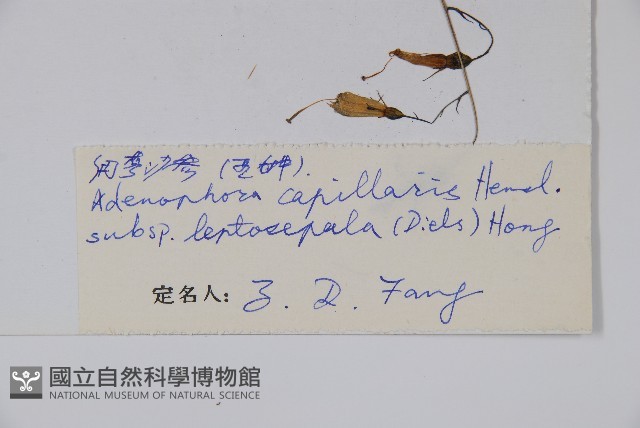 细萼沙参 (亚种).
Adenophora capillaris Hemsl.
subsp. leptosepala (Diels) Hong
定名人: Z. D. Fang
國立自然科學博物館
NATIONAL MUSEUM OF NATURAL SCIENCE